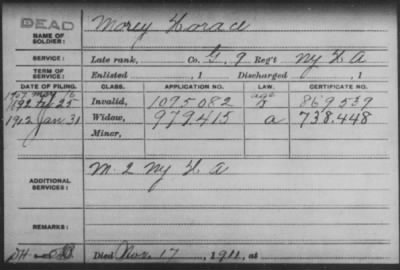 DEAD
NAME OF SOLDIER: Morey Horace
SERVICE: Late rank, Co. G, 9 Reg't NY H A
TERM OF SERVICE: Enlisted , 1 Discharged , 1
DATE OF FILING. CLASS. APPLICATION NO. LAW. CERTIFICATE NO.
1907 May 16 age
1892 Feb 25 Invalid, 1095.082 869.539
1912 Jan 31 Widow, 979.415 a 738.448
Minor,
ADDITIONAL SERVICES: M. 2 NY H A
REMARKS:
Died Nov. 17, 1911, at